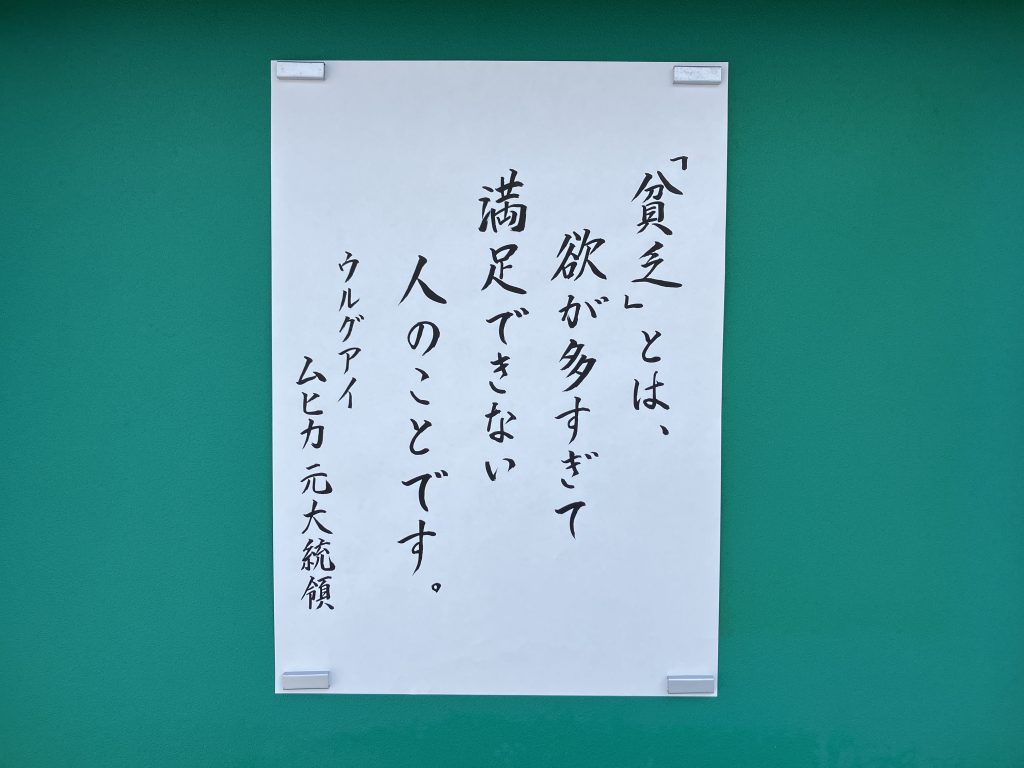 「貧乏」とは、
欲が多すぎて
満足できない
人のことです。
ウルグアイ
ムヒカ 元大統領